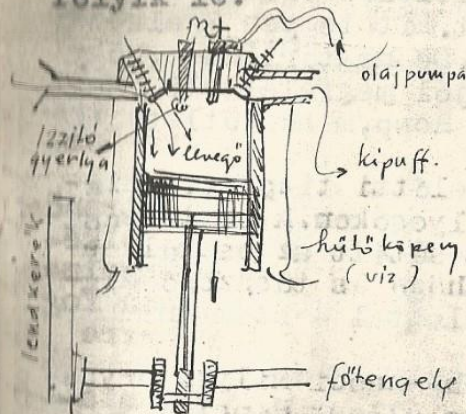 folyik le.
olajpumpa
izzitó
gyertya
levegő
kipuff.
hűtőköpeny
(víz)
lendkerék
főtengely